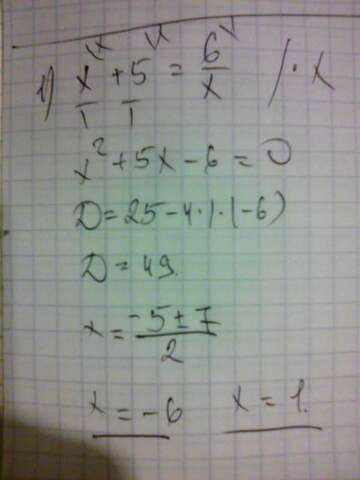 1) x/1 + 5/1 = 6/x /·x
x² + 5x - 6 = 0
D = 25 - 4·1·(-6)
D = 49.
x = (-5 ± 7)/2
x = -6 x = 1.